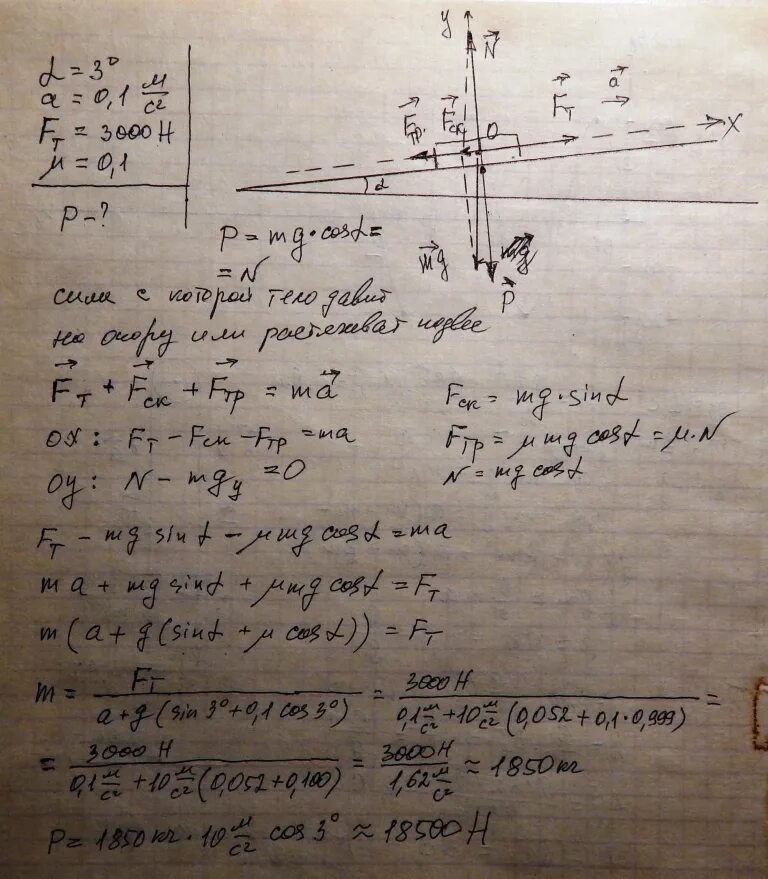 α = 3°
a = 0,1 м/с²
Fт = 3000 Н
μ = 0,1
P - ?
y
N
Fтр. Fск 0 Fт a
X
α
mg mg
P
P = mg·cosα =
= N
сила с которой тело давит
на опору или растягиват подвес
Fт + Fск + Fтр = ma
Fск = mg·sinα
ох: Fт - Fск - Fтр = ma
Fтр = μmg cosα = μ·N
оу: N - mgy = 0
N = mg cosα
Fт - mg sinα - μmg cosα = ma
ma + mg sinα + μmg cosα = Fт
m(a + g(sinα + μ cosα)) = Fт
m = Fт / a + g(sin 3° + 0,1 cos 3°) = 3000 Н / 0,1 м/с² + 10 м/с² (0,052 + 0,1·0,999) =
= 3000 Н / 0,1 м/с² + 10 м/с² (0,052 + 0,100) = 3000 Н / 1,62 м/с² ≈ 1850 кг
P = 1850 кг · 10 м/с² cos 3° ≈ 18500 Н